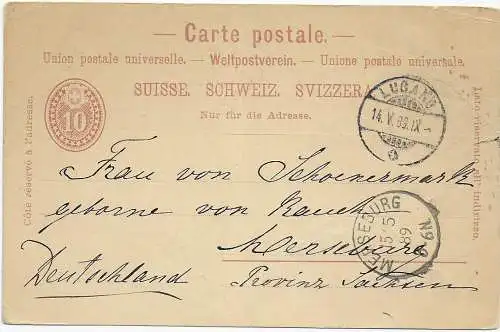 — Carte postale. —
Union postale universelle. — Weltpostverein. — Unione postale universale.
SUISSE. SCHWEIZ. SVIZZERA
Nur für die Adresse.
Côté réservé à l'adresse.
Lato riservato all' indirizzo.
10
LUGANO
14. V. 89. IX -
Frau von Schoenermark
geborne von Rauch
Merseburg
Deutschland
Provinz Sachsen
MERSEBURG
15 5
89